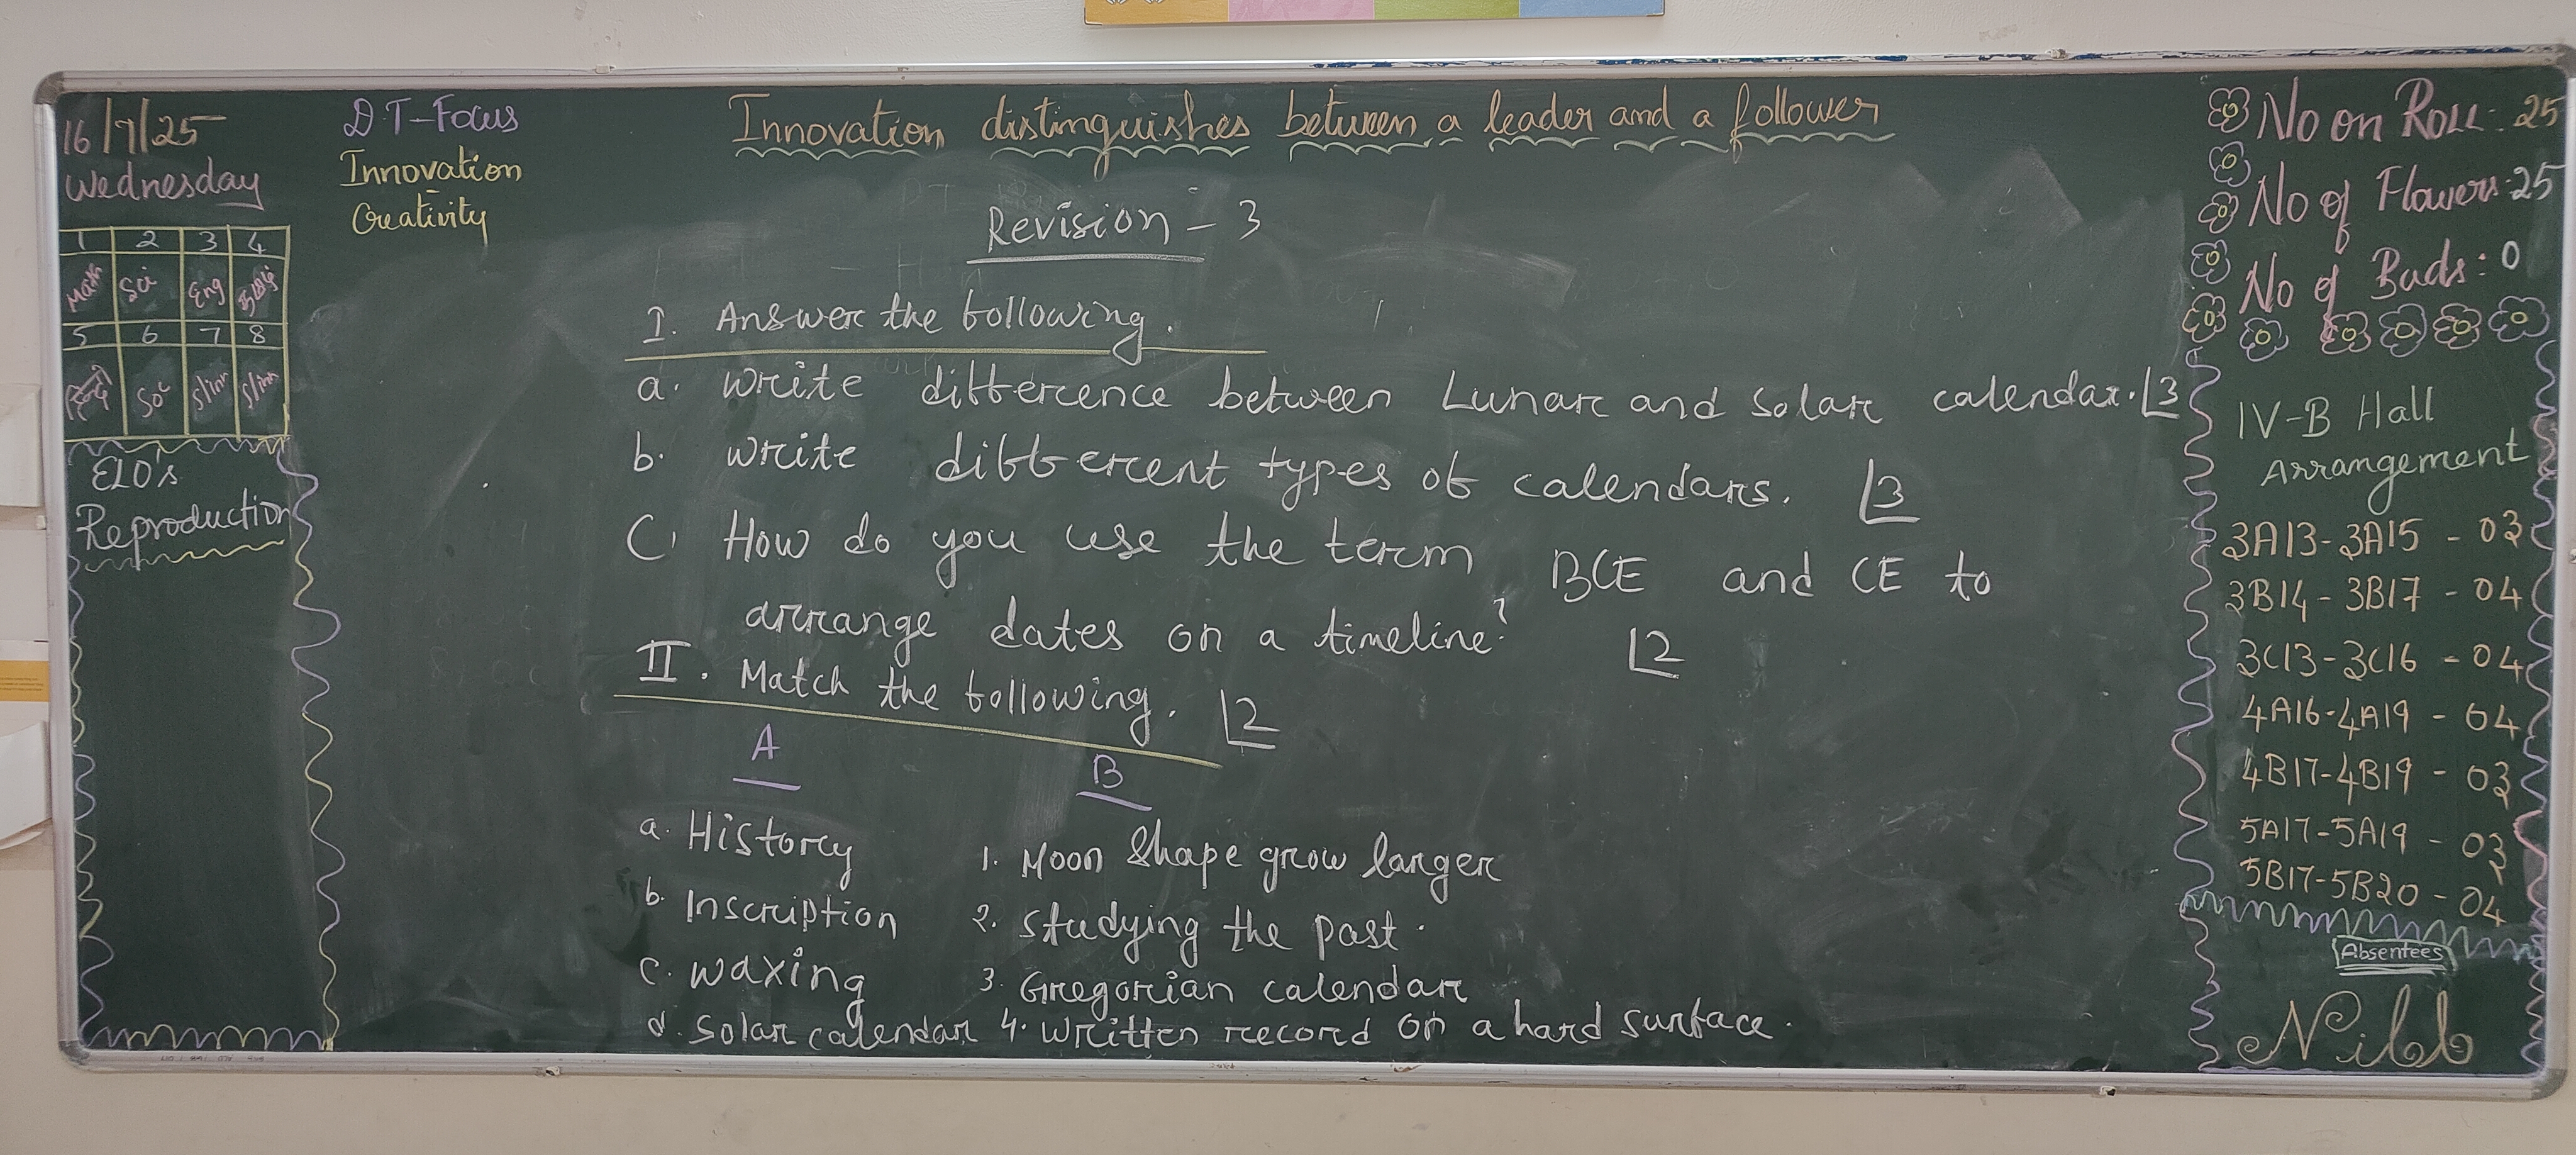 16/7/25
Wednesday
1 2 3 4
Math Sci Eng தமிழ்
5 6 7 8
हिन्दी So S/inn S/inn
ELO's
Reproduction
DT-Focus
Innovation
Creativity
Innovation distinguishes between a leader and a follower
Revision - 3
I. Answer the following.
a. Write difference between Lunar and Solar calendar. 3
b. Write different types of calendars. 3
C. How do you use the term BCE and CE to
arrange dates on a timeline? 2
II. Match the following. 2
A B
a. History 1. Moon Shape grow larger
b. Inscription 2. Studying the past.
c. waxing 3. Gregorian calendar
d. Solar calendar 4. Written record on a hard surface.
No on Roll: 25
No of Flowers: 25
No of Buds: 0
IV-B Hall
Arrangement
3A13-3A15 - 03
3B14-3B17 - 04
3C13-3C16 - 04
4A16-4A19 - 04
4B17-4B19 - 03
5A17-5A19 - 03
5B17-5B20 - 04
Absentees
Nill